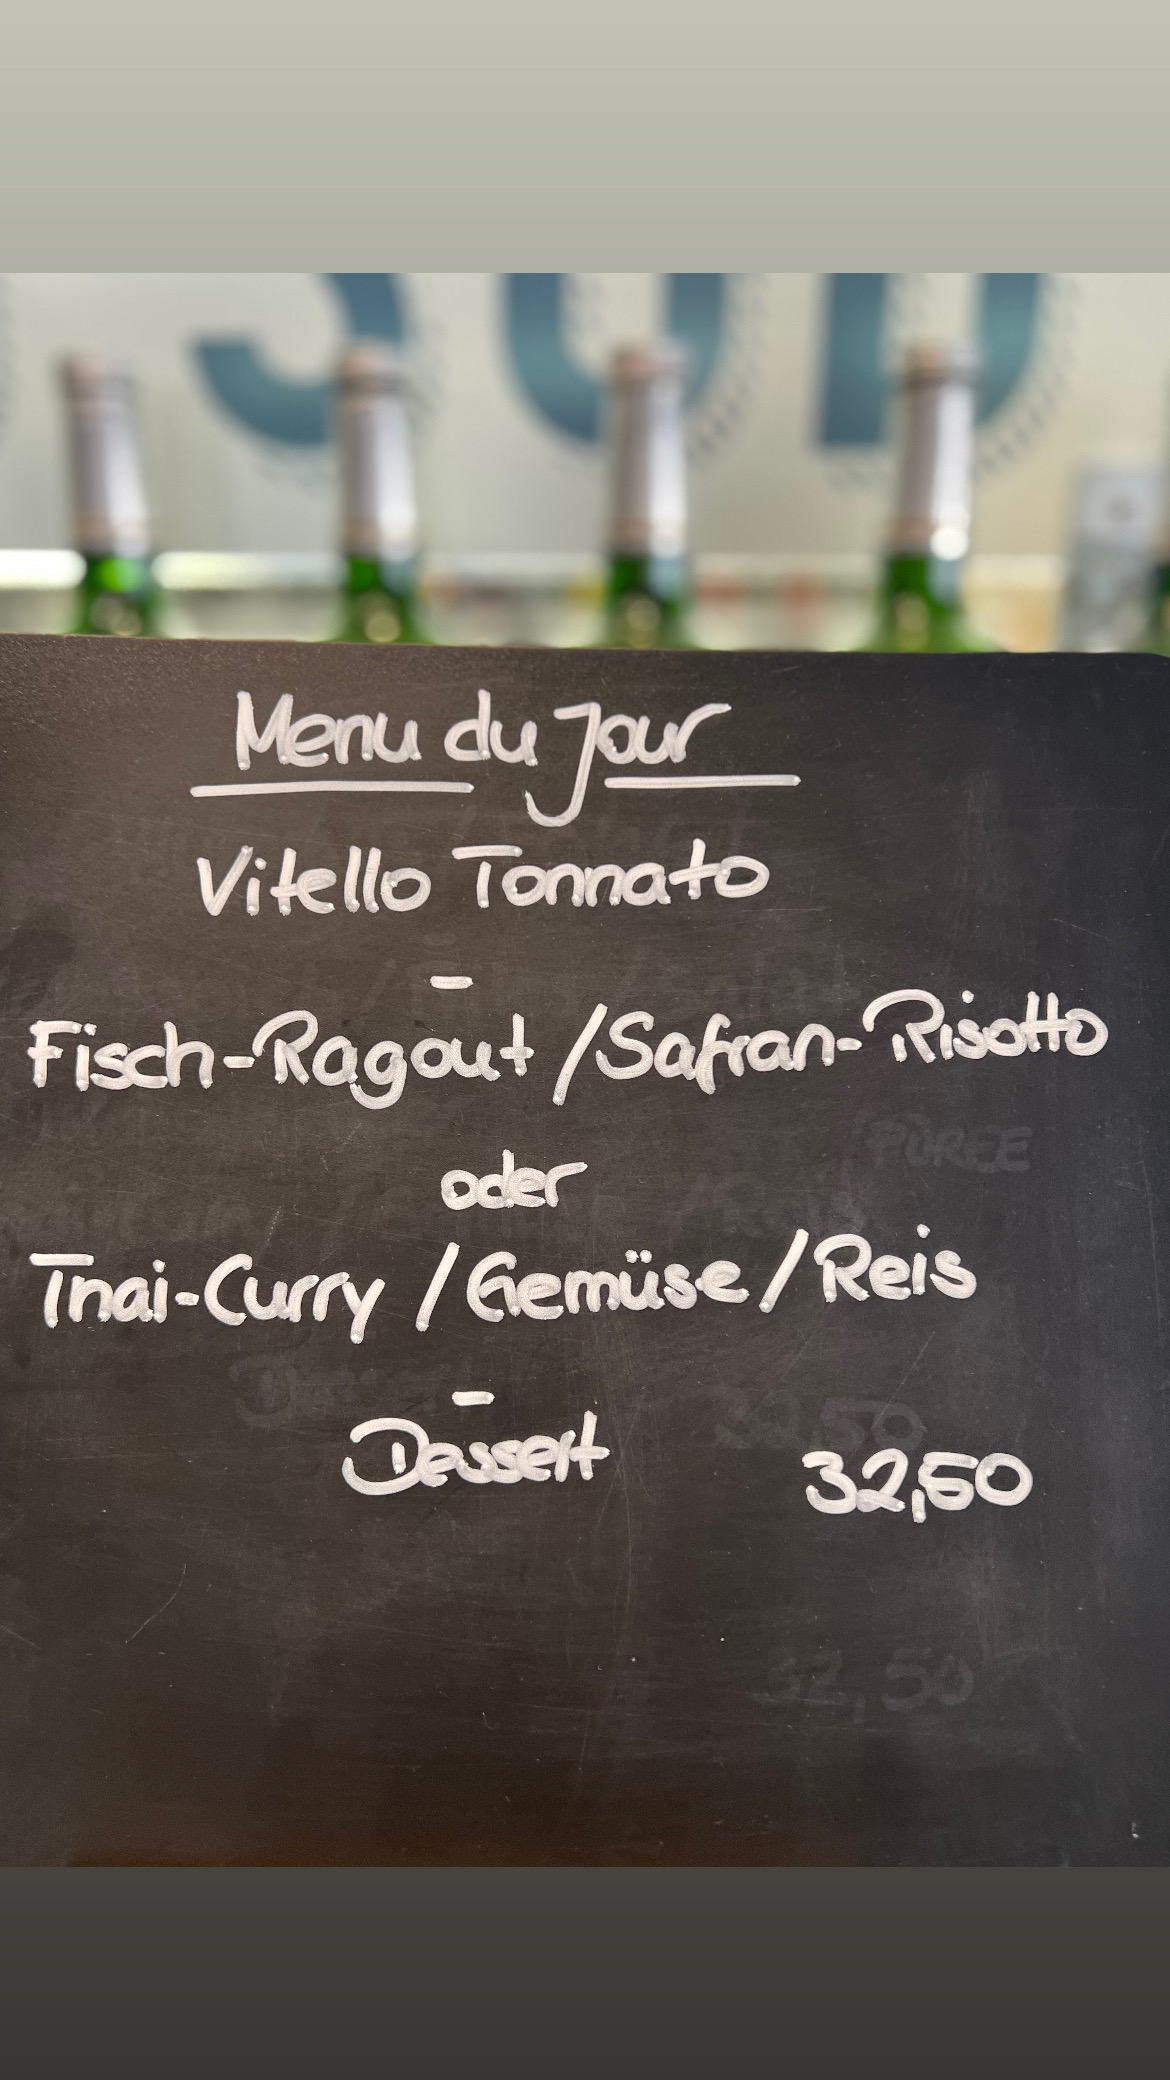 SUD
Menu du Jour
Vitello Tonnato
-
Fisch-Ragout / Safran-Risotto
PÜREE
oder
Thai-Curry / Gemüse / Reis
-
Dessert 32,50
32,50